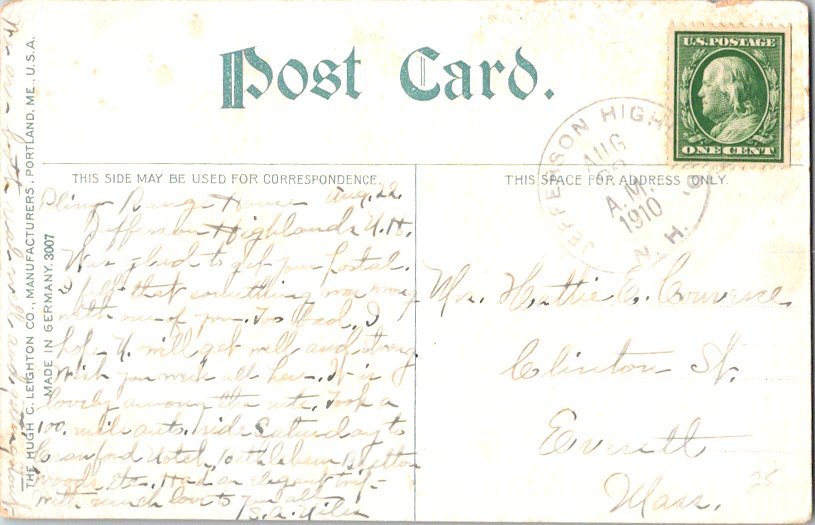 Post Card.
U.S. POSTAGE
ONE CENT
JEFFERSON HIGH
N. H.
AUG
A.M.
1910
THIS SIDE MAY BE USED FOR CORRESPONDENCE.
THIS SPACE FOR ADDRESS ONLY.
THE HUGH C. LEIGHTON CO., MANUFACTURERS, PORTLAND, ME., U.S.A.
MADE IN GERMANY. 3007
Range House Aug. 22
Jefferson Highlands N.H.
Was glad to get your postal.
I felt that something was wrong
with one of you. Too bad. I
hope U. will get well and strong.
Wish you were all here. It is
lovely among the mts. Took a
100 mile auto. ride Saturday to
Crawford Hotel, Bethlehem Bretton
woods, Etc. Had an elegant trip
With much love to you all
S.A.
Mrs. Hattie E.
Clinton St.
Everett
Mass.
25